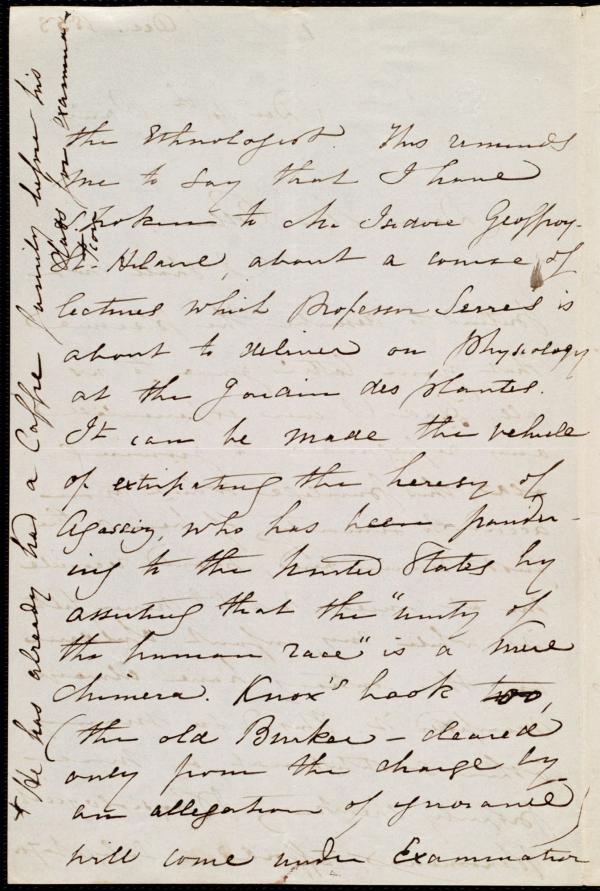 the Ethnologist. This reminds
me to say that I have
spoken to M. Isidore Geoffroy-
St-Hilaire, about a course of
lectures which Professor Serres is
about to deliver on Physiology
at the Jardin des Plantes. +
It can be made the vehicle
of extirpating the heresy of
Agassiz, who has been pander-
ing to the United States by
asserting that the "unity of
the human race" is a mere
chimera. Knox's book too,
(the old Burker - cleared
only from the charge by
an allegation of ignorance)
will come under Examination
+ He has already had a Caffre family before his
class for examina-
tion